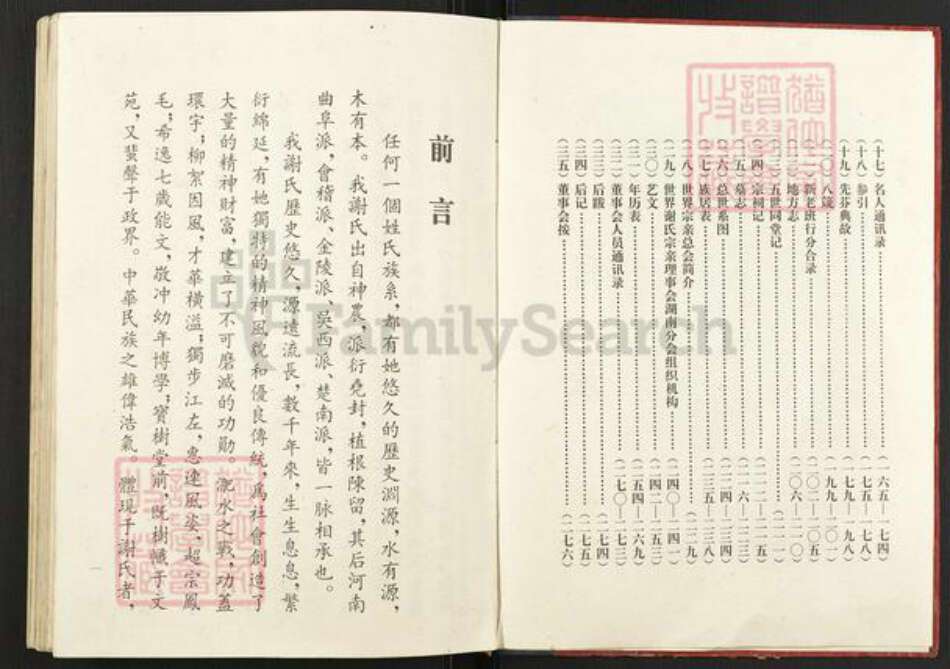 (十七)名人通讯录……(一六五—一七四)
(十八)参引……(一七五—一七八)
(十九)先芬典故……(一七九—一九八)
(二〇)八箴……(一九九—二〇一)
新老班行分合录……(二〇二—二〇五)
地方志……(二〇六—二一〇)
五世同堂记……(二一一)
宗祠记……(二一二—二一五)
墓志……(二一六—二二三)
总世系图……(二二四—二三四)
族居表……(二三五—二三八)
(二八)世界宗亲总会简介……(二三九)
(二九)世界谢氏宗亲理事会湖南分会组织机构……(二四〇—二四一)
(三〇)艺文……(二四二—二五三)
(三一)年历表……(二五四—二六九)
(三二)董事会人员通讯录……(二七〇—二七三)
(三三)后跋……(二七四)
(三四)后记……(二七五)
(三五)董事会按……(二七六)
前言
任何一個姓氏族系,都有她悠久的歷史淵源,水有源,
木有本。我謝氏出自神農,派衍堯封,植根陳留,其后河南
曲阜派,會稽派、金陵派、吳西派、楚南派,皆一脉相承也。
我謝氏歷史悠久,源遠流長,數千年來,生生息息,繁
衍綿延,有她獨特的精神風貌和優良傳統,爲社會創造了
大量的精神財富,建立了不可磨滅的功勛。淝水之戰,功蓋
環宇;柳絮因風,才華橫溢;獨步江左,惠連風姿、超宗鳳
毛;希逸七歲能文,敬冲幼年博學;寶樹堂前,既樹幟于文
苑,又蜚聲于政界。中華民族之雄偉浩氣。體現于謝氏者,
一
FamilySearch